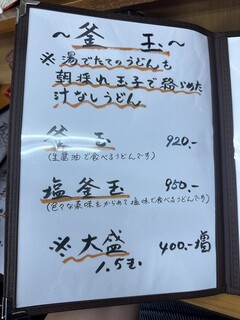 ～釜玉～
※湯でたてのうどんも
朝採れ玉子で絡めた
汁なしうどん
釜玉 920.-
(生醤油で食べるうどんです)
塩釜玉 950.-
(色々な薬味をからめて塩味で食べるうどんです)
※大盛 400.-増
1.5玉